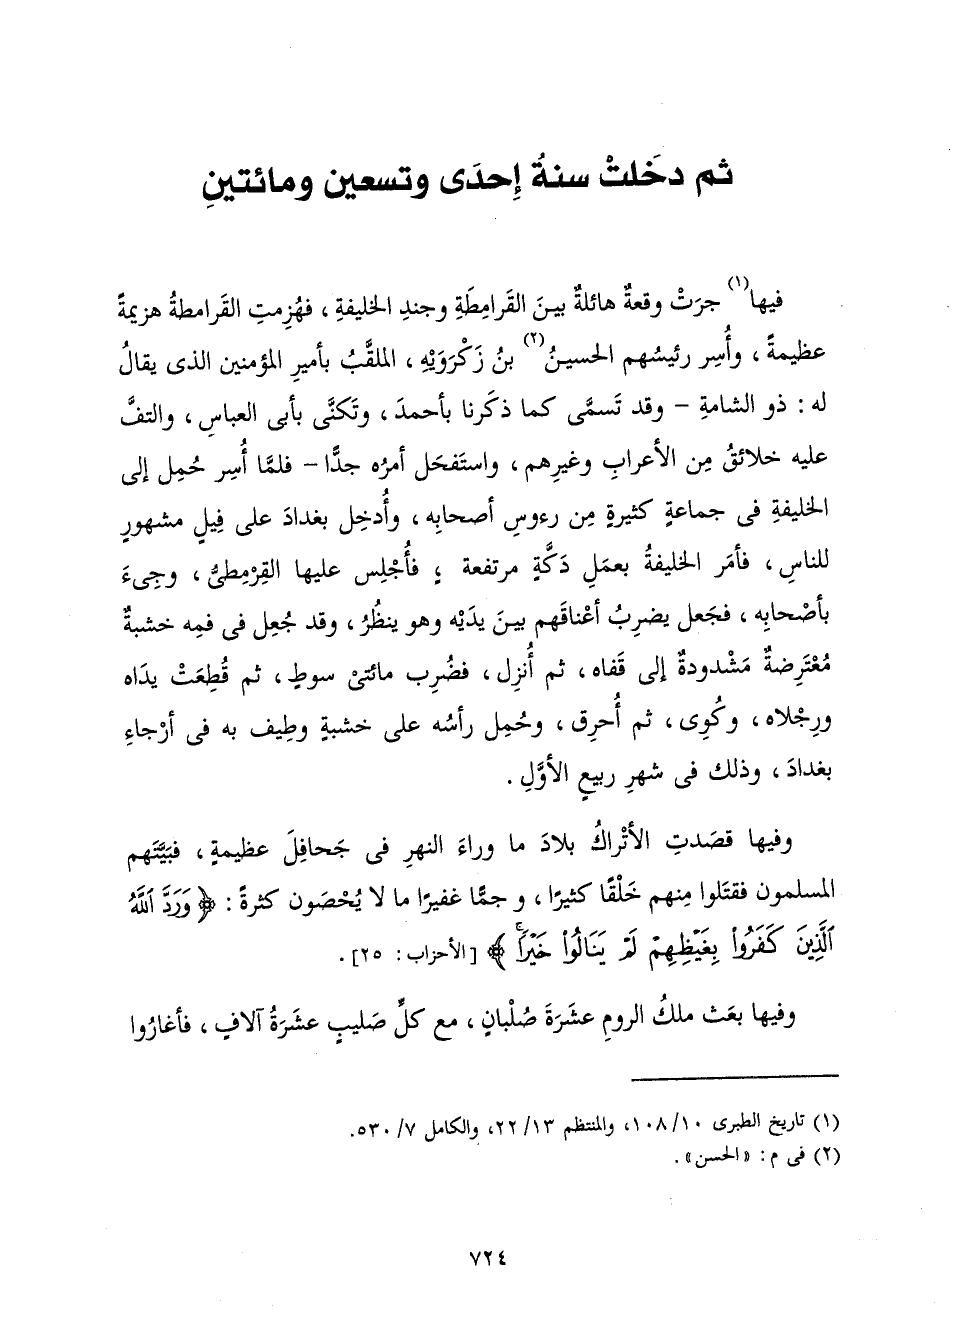 ثم دخَلتْ سنةُ إِحدَى وتسعين ومائتينِ
فيها(١) جرَتْ وقعةٌ هائلةٌ بينَ القَرامِطَةِ وجندِ الخليفةِ ، فهُزِمتِ القَرامطةُ هزيمةً
عظيمةً ، وأُسِر رئيسُهم الحسينُ(٢) بنُ زَكْرَوَيْهِ ، الملقَّبُ بأميرِ المؤمنين الذى يقالُ
له : ذو الشامةِ – وقد تَسمَّى كما ذكَرنا بأحمدَ ، وتَكنَّى بأبى العباسِ ، والتفَّ
عليه خلائقُ مِن الأعرابِ وغيرِهم ، واستَفحَل أمرُه جدًّا – فلمَّا أُسِر حُمِل إلى
الخليفةِ فى جماعةٍ كثيرةٍ مِن رءوسِ أصحابِه ، وأُدخِل بغدادَ على فِيلٍ مشهورٍ
للناسِ ، فأمَر الخليفةُ بعمَلِ دَكَّةٍ مرتفعة ؛ فأُجْلِس عليها القِرْمِطىُّ ، وجِىءَ
بأصْحابِه ، فجَعل يضرِبُ أعْناقَهم بينَ يدَيْه وهو ينظُرُ ، وقد جُعِل فى فمِه خشبةٌ
مُعْتَرِضةٌ مَشْدودةٌ إلى قَفاه ، ثم أُنزِل ، فضُرِب مائتىْ سوطٍ ، ثم قُطِعَتْ يداه
ورِجْلاه ، وكُوِى ، ثم أُحرِق ، وحُمِل رأسُه على خشبةٍ وطِيف به فى أرْجاءِ
بغدادَ ، وذلك فى شهرِ ربيعٍ الأوَّلِ .
وفيها قصَدتِ الأتْراكُ بلادَ ما وراءَ النهرِ فى جَحافِلَ عظيمةٍ ، فبَيَّتَهم
المسلمون فقتَلوا مِنهم خَلْقًا كثيرًا ، و جمًّا غفيرًا ما لا يُحْصَون كثرةً : ﴿ وَرَدَّ ٱللَّهُ
ٱلَّذِينَ كَفَرُواْ بِغَيْظِهِمْ لَمْ يَنَالُواْ خَيْرًاۚ ﴾ [الأحزاب : ٢٥] .
وفيها بعَث ملكُ الرومِ عشَرَةَ صُلْبانٍ ، مع كلِّ صَليبٍ عشَرَةُ آلافٍ ، فأغارُوا
(١) تاريخ الطبرى ١٠/ ١٠٨، والمنتظم ١٣/ ٢٢، والكامل ٧/ ٥٣٠.
(٢) فى م : «الحسن» .
٧٢٤